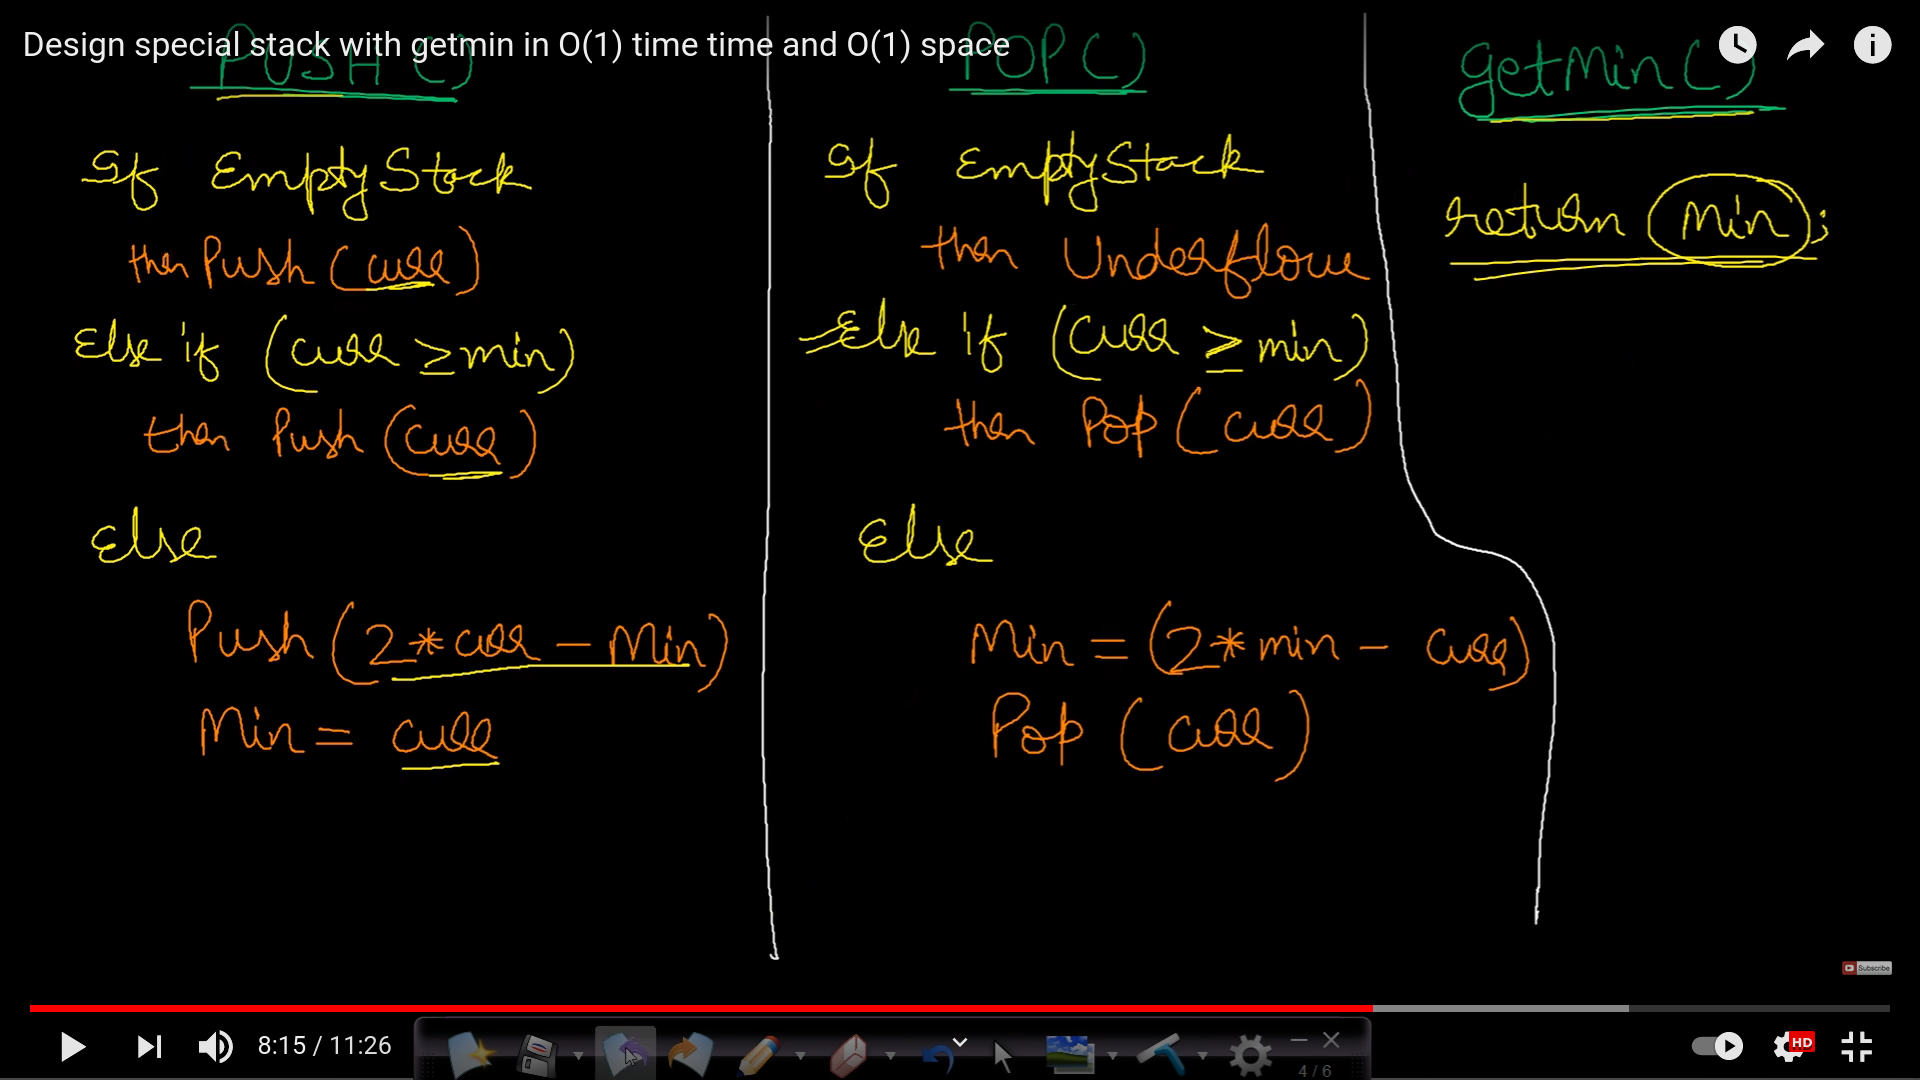 Design special stack with getmin in O(1) time time and O(1) space
PUSH()
If EmptyStack
then Push (curr)
Else if (curr ≥ min)
then Push (curr)
Else
Push (2 * curr - Min)
Min = curr
POP()
If EmptyStack
then Underflow
Else if (curr ≥ min)
then Pop (curr)
Else
Min = (2 * min - curr)
Pop (curr)
getMin()
return Min;
Subscribe
8:15 / 11:26
HD
4 / 6